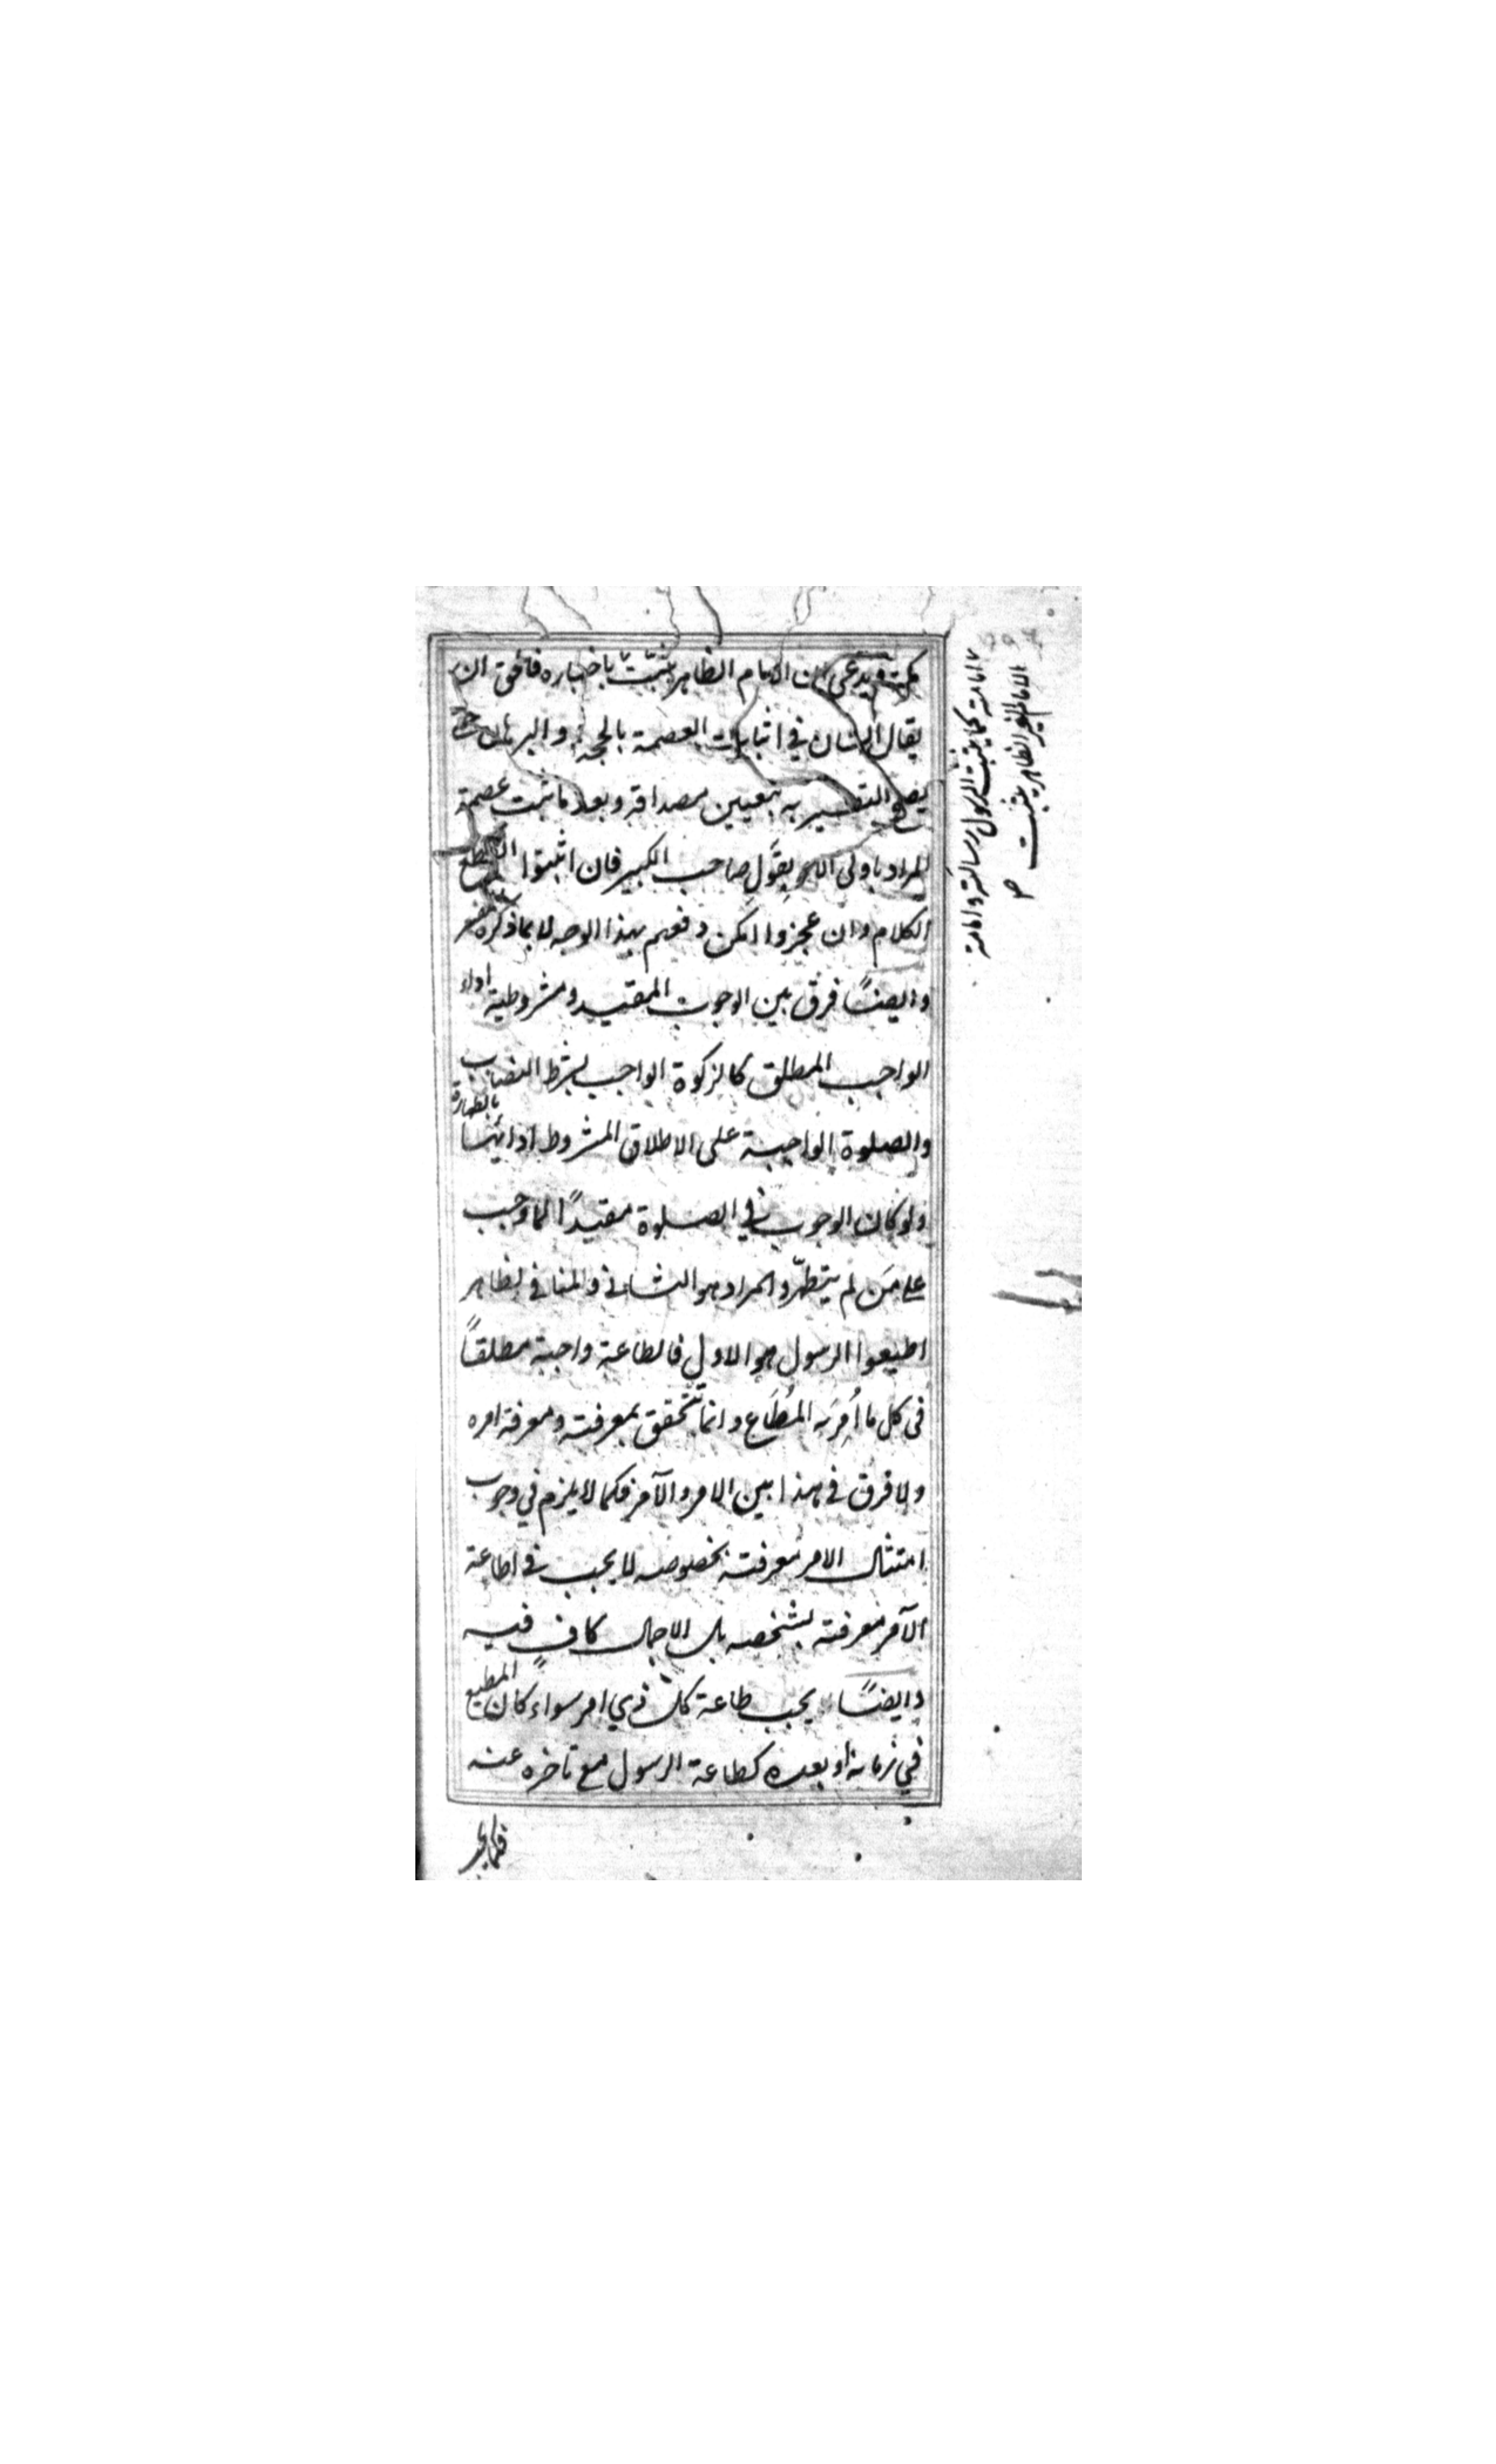 ويدعى ان الامام الظاهر يثبت باخباره فالحق ان
يقال الشان في اثبات العصمة بالحجة والبرهان حتى
يصح التفسير به بتعيين مصداقه وبعد ما ثبت عصمة
المراد باولى الامر بقول صاحب الكبير فان اثبتوا
الكلام وان عجزوا امكن دفعهم بهذا الوجه لا بما ذكره
وايضًا فرق بين الوجوب المقيد ومشروطية اداء
الواجب المطلق كالزكوة الواجب بشرط النصاب
والصلوة الواجبة على الاطلاق المشروط ادائها بالطهارة
ولو كان الوجوب في الصلوة مقيدًا لما وجب
على مَن لم يتطهّر والمراد هو الثاني والمنافي لظاهر
اطيعوا الرسول هو الاول فالطاعة واجبة مطلقًا
في كل ما اُمِرَ به المُطَاع وانما تتحقق بمعرفته ومعرفة امره
ولا فرق في هذا بين الامر والآمر فكما لا يلزم في وجوب
امتثال الامر معرفته بخصوصه لا يجب في اطاعة
الآمر معرفته بشخصه بل الاجمال كافٍ فيه
وايضًا يجب طاعة كل ذي امر سواء كان المطيع
في زمانه او بعده كطاعة الرسول مع تاخره عنه
امامته كما يثبت الرسول رسالته وامامة
الامام الغير الظاهر يثبت